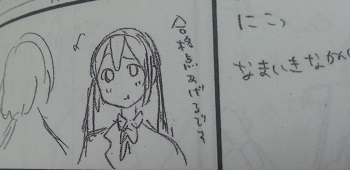 合格点あげるです
にこっ
なまいきなかん